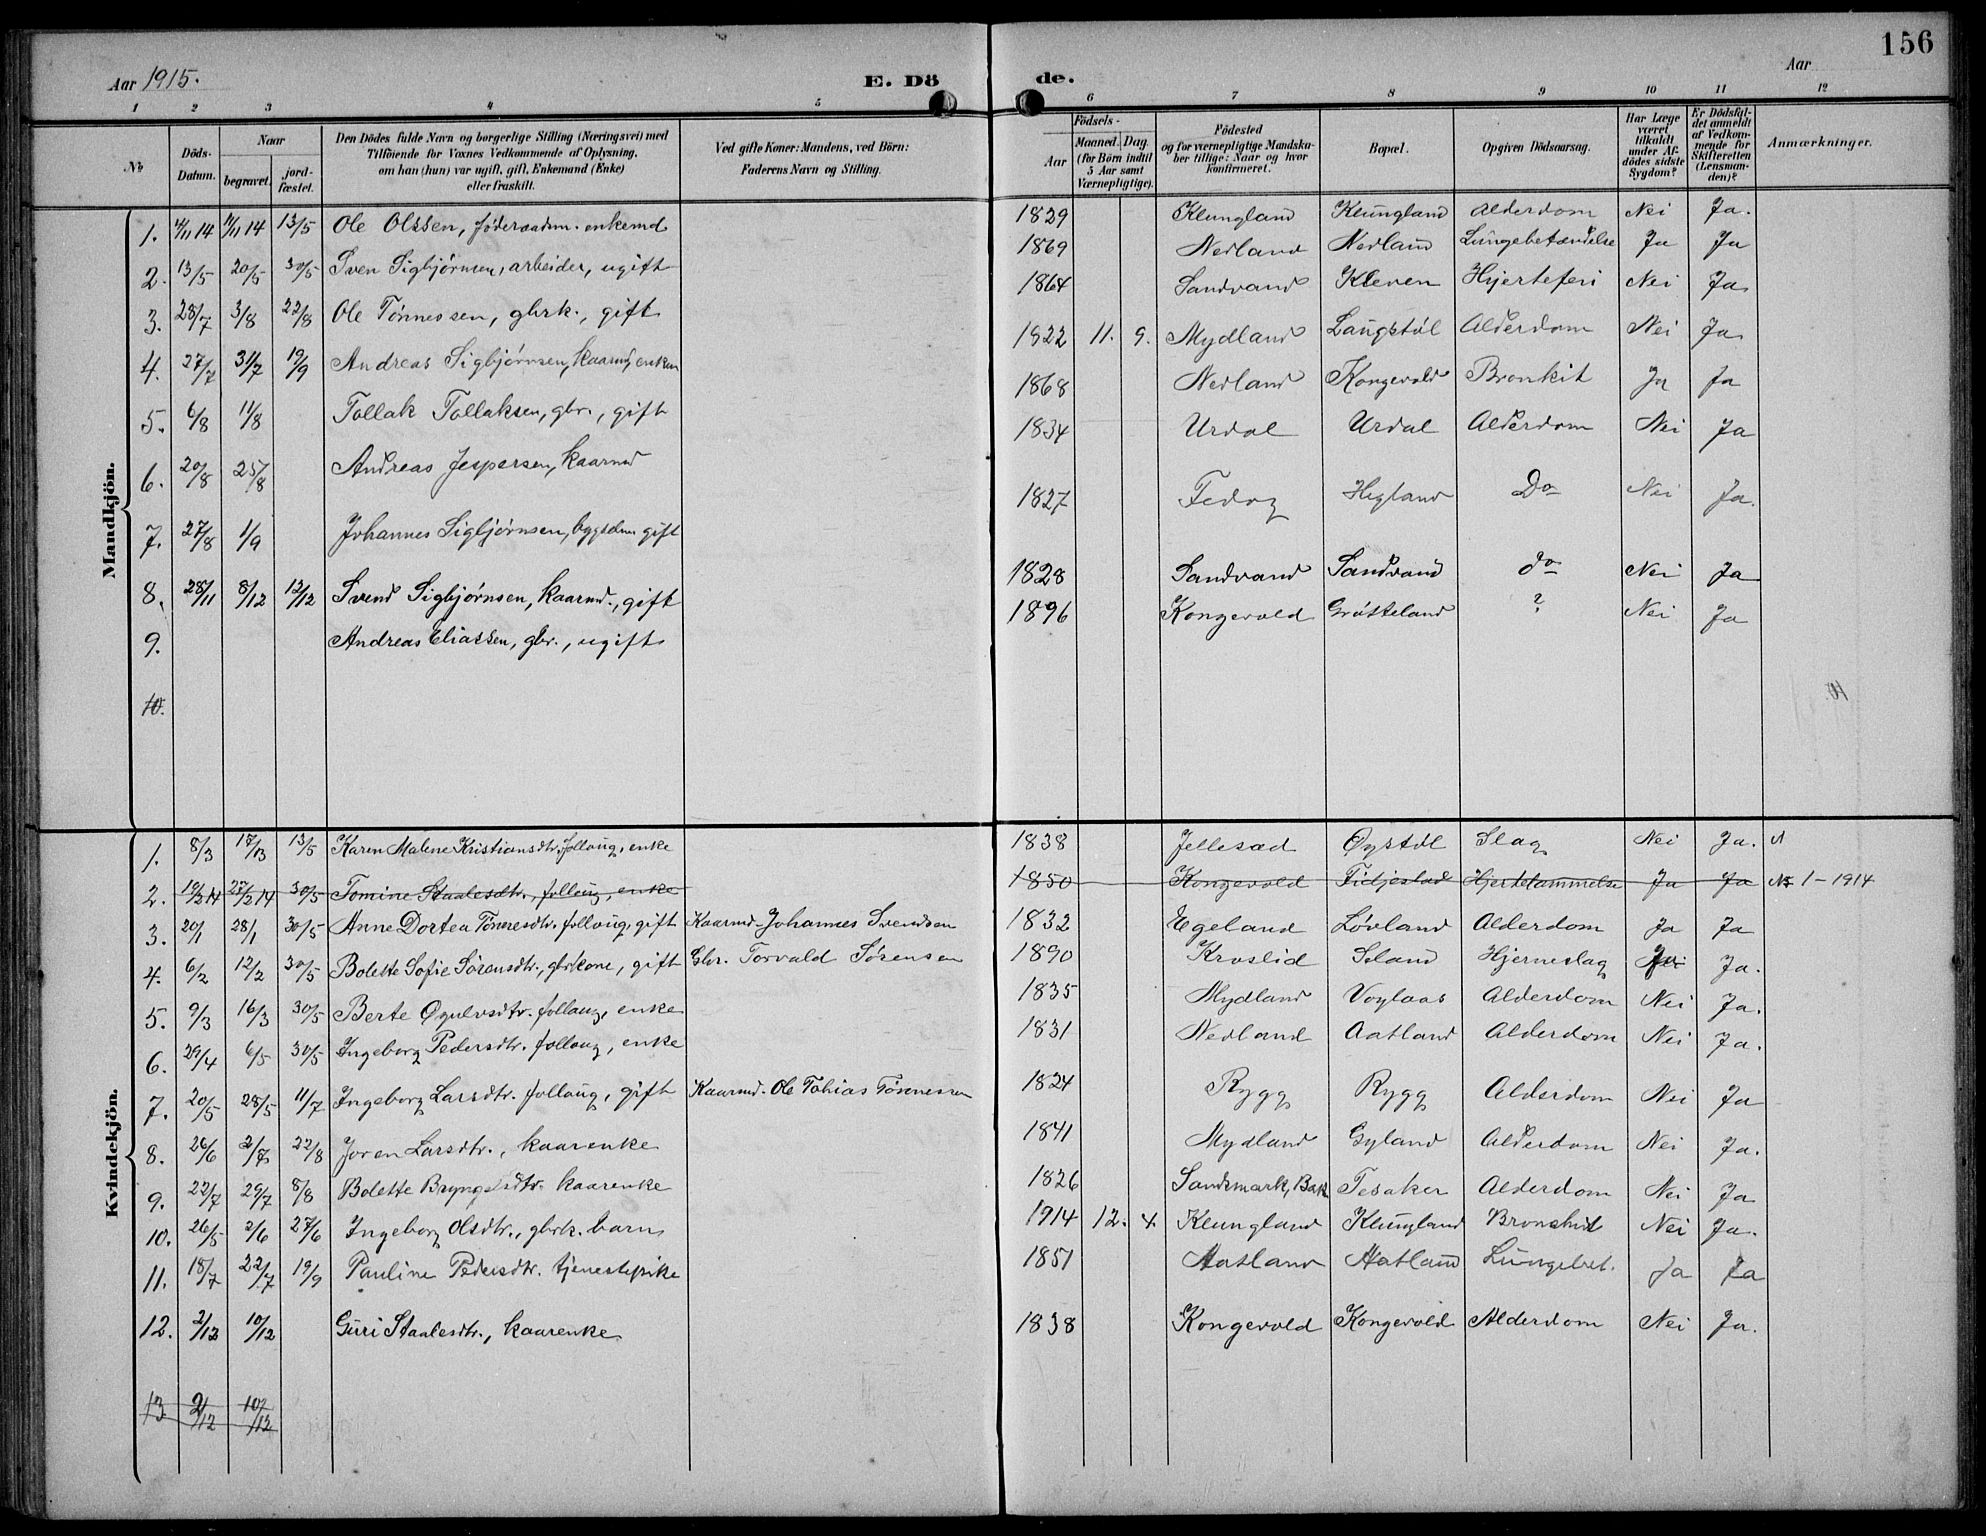 156
Aar 1915. E. Dö de. Aar
1 2 3 4 5 6 7 8 9 10 11 12
№ Döds-Datum. Naar begravet. jord-fæstet. Den Dödes fulde Navn og borgerlige Stilling (Næringsvei) med Tilföiende for Voxnes Vedkommende af Oplysning, om han (hun) var ugift, gift, Enkemand (Enke) eller fraskilt. Ved gifte Koner: Mandens, ved Börn: Faderens Navn og Stilling. Födsels- Aar Maaned. Dag. (for Börn indtil 5 Aar samt Værnepligtige). Födested og for værnepligtige Mandskaber tillige: Naar og hvor konfirmeret. Bopæl. Opgiven Dödsaarsag. Har Læge været tilkaldt under Afdödes sidste Sygdom? Er Dödsfaldet anmeldt af Vedkommende for Skifteretten (Lensmanden)? Anmærkninger.
Mandkjön.
1. 4/11 14 11/11 14 13/5 Ole Olssen, føderaadsm. enkemd 1829 Kleungland Kleungland Alderdom Nei Ja.
2. 13/5 20/5 30/5 Sven Sigbjørnsen, arbeider, ugift 1869 Nedland Nedland Lungebetændelse Ja Ja
3. 28/7 3/8 22/8 Ole Tønnessen, gbrk., gift 1864 Sandvand Kleven Hjerteferi Nei Ja
4. 27/7 31/7 19/9 Andreas Sigbjørnsen, kaarmd, enkem 1822 11. 9. Mydland Laugstøl Alderdom Nei Ja
5. 6/8 11/8 Tollak Tollaksen, gbr., gift 1868 Nedland Kongevold Bronkit Ja Ja
6. 20/8 25/8 Andreas Jespersen, kaarmd 1834 Urdal Urdal Alderdom Nei Ja
7. 27/8 1/9 Johannes Sigbjørnsen, bygselm gift 1827 Fedog Hegland Do Nei Ja.
8. 28/11 8/12 12/12 Svend Sigbjørnsen, kaarmd., gift 1828 Sandvand Sandvand do Nei Ja
9. Andreas Eliassen, gbr., ugift 1896 Kongevold Grøtteland ? Nei Ja
10.
Kvindekjön.
1. 8/3 17/3 13/5 Karen Malene Kristiansdtr. follaug, enke 1838 Jellesad Øystøl Slag Nei Ja.
2. 19/2 14 27/2 14 30/5 Tomine Staalesdtr., follaug, enke 1850 Kongevold Fidjestad Hjertelammelse Ja Ja № 1 - 1914
3. 20/1 28/1 30/5 Anne Dortea Tønnesdtr. follaug, gift Kaarmd Johannes Svendsen 1832 Egeland Løvland Alderdom Ja Ja
4. 6/2 12/2 30/5 Bolette Sofie Sørensdtr., gbrkone, gift Gbr. Torvald Sørensen 1890 Kroslid Seland Hjerneslag Ja.
5. 9/3 16/3 30/5 Berte Øyulvsdtr. follaug, enke 1835 Mydland Voglaas Alderdom Nei Ja.
6. 29/4 6/5 30/5 Ingeborg Pedersdtr. follaug, enke 1831 Nedland Aatland Alderdom Nei Ja.
7. 20/5 28/5 11/7 Ingeborg Larsdtr. follaug, gift Kaarmd. Ole Tobias Tønnessen 1824 Rygg Rygg Alderdom Nei Ja
8. 26/6 2/7 22/8 Joren Larsdtr., kaarenke 1841 Mydland Gyland Alderdom Nei Ja.
9. 22/7 29/7 8/8 Bolette Bryngelsdtr. kaarenke 1826 Sandsmark, Bak Tesaker Alderdom Nei Ja
10. 26/5 2/6 27/6 Ingeborg Olsdtr., gbrk. barn 1914 12. 4. Kleungland Kleungland Bronchit Nei Ja.
11. 18/7 22/7 19/9 Pauline Pedersdtr. tjenestepike 1851 Aatland Aatland Lungebet. Ja Ja
12. 2/12 10/12 Guri Staalesdtr., kaarenke 1838 Kongevold Kongevold Alderdom Nei Ja.
13 2/12 10/12